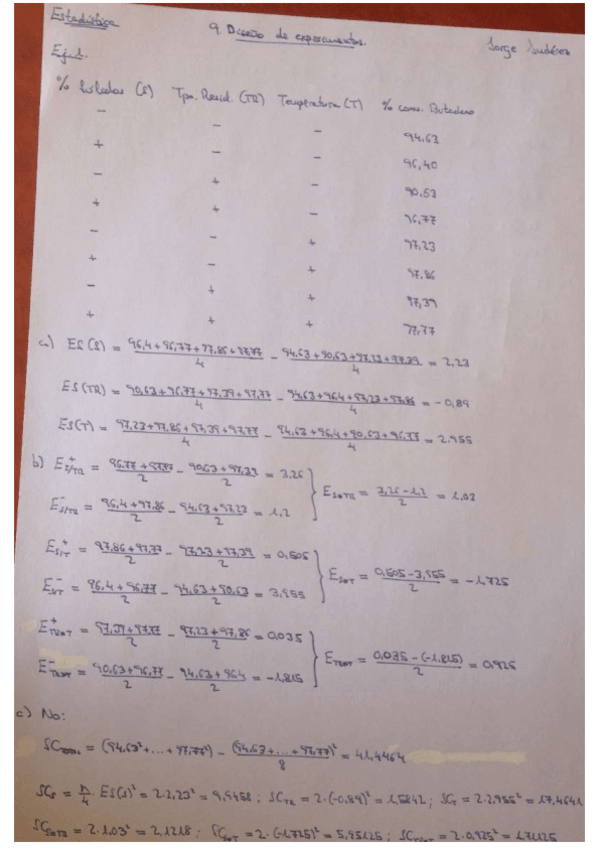 Estadística
9. Diseño de experimentos. Jorge
Ejul.
% (S) Tpo. Resid. (TR) Temperatura (T) % conv. Butadieno
- - - 94,63
+ - - 96,40
- + - 90,63
+ + - 96,77
- - + 97,23
+ - + 97,86
- + + 97,39
+ + + 97,77
a) ES(S) = (96,4+96,77+97,86+97,77)/4 - (94,63+90,63+97,23+97,39)/4 = 2,23
ES(TR) = (90,63+96,77+97,39+97,77)/4 - (94,63+96,4+97,23+97,86)/4 = -0,89
ES(T) = (97,23+97,86+97,39+97,77)/4 - (94,63+96,4+90,63+96,77)/4 = 2,955
b) E⁺S/TR = (96,77+97,77)/2 - (90,63+97,39)/2 = 3,26
E⁻S/TR = (96,4+97,86)/2 - (94,63+97,23)/2 = 1,2 } ES*TR = (3,26-1,2)/2 = 1,03
E⁺S/T = (97,86+97,77)/2 - (97,23+97,39)/2 = 0,505
E⁻S/T = (96,4+96,77)/2 - (94,63+90,63)/2 = 3,955 } ES*T = (0,505-3,955)/2 = -1,725
E⁺TR*T = (97,39+97,77)/2 - (97,23+97,86)/2 = 0,035
E⁻TR*T = (90,63+96,77)/2 - (94,63+96,4)/2 = -1,815 } ETR*T = (0,035-(-1,815))/2 = 0,925
c) No:
SCTOTAL = (94,63²+...+97,77²) - (94,63+...+97,77)²/8 = 41,4464
SCS = n/4 · ES(S)² = 2·2,23² = 9,9458 ; SCTR = 2·(-0,89)² = 1,5842 ; SCT = 2·2,955² = 17,4641
SCS*TR = 2·1,03² = 2,1218 ; SCS*T = 2·(-1,725)² = 5,95125 ; SCTR*T = 2·0,925² = 1,71125